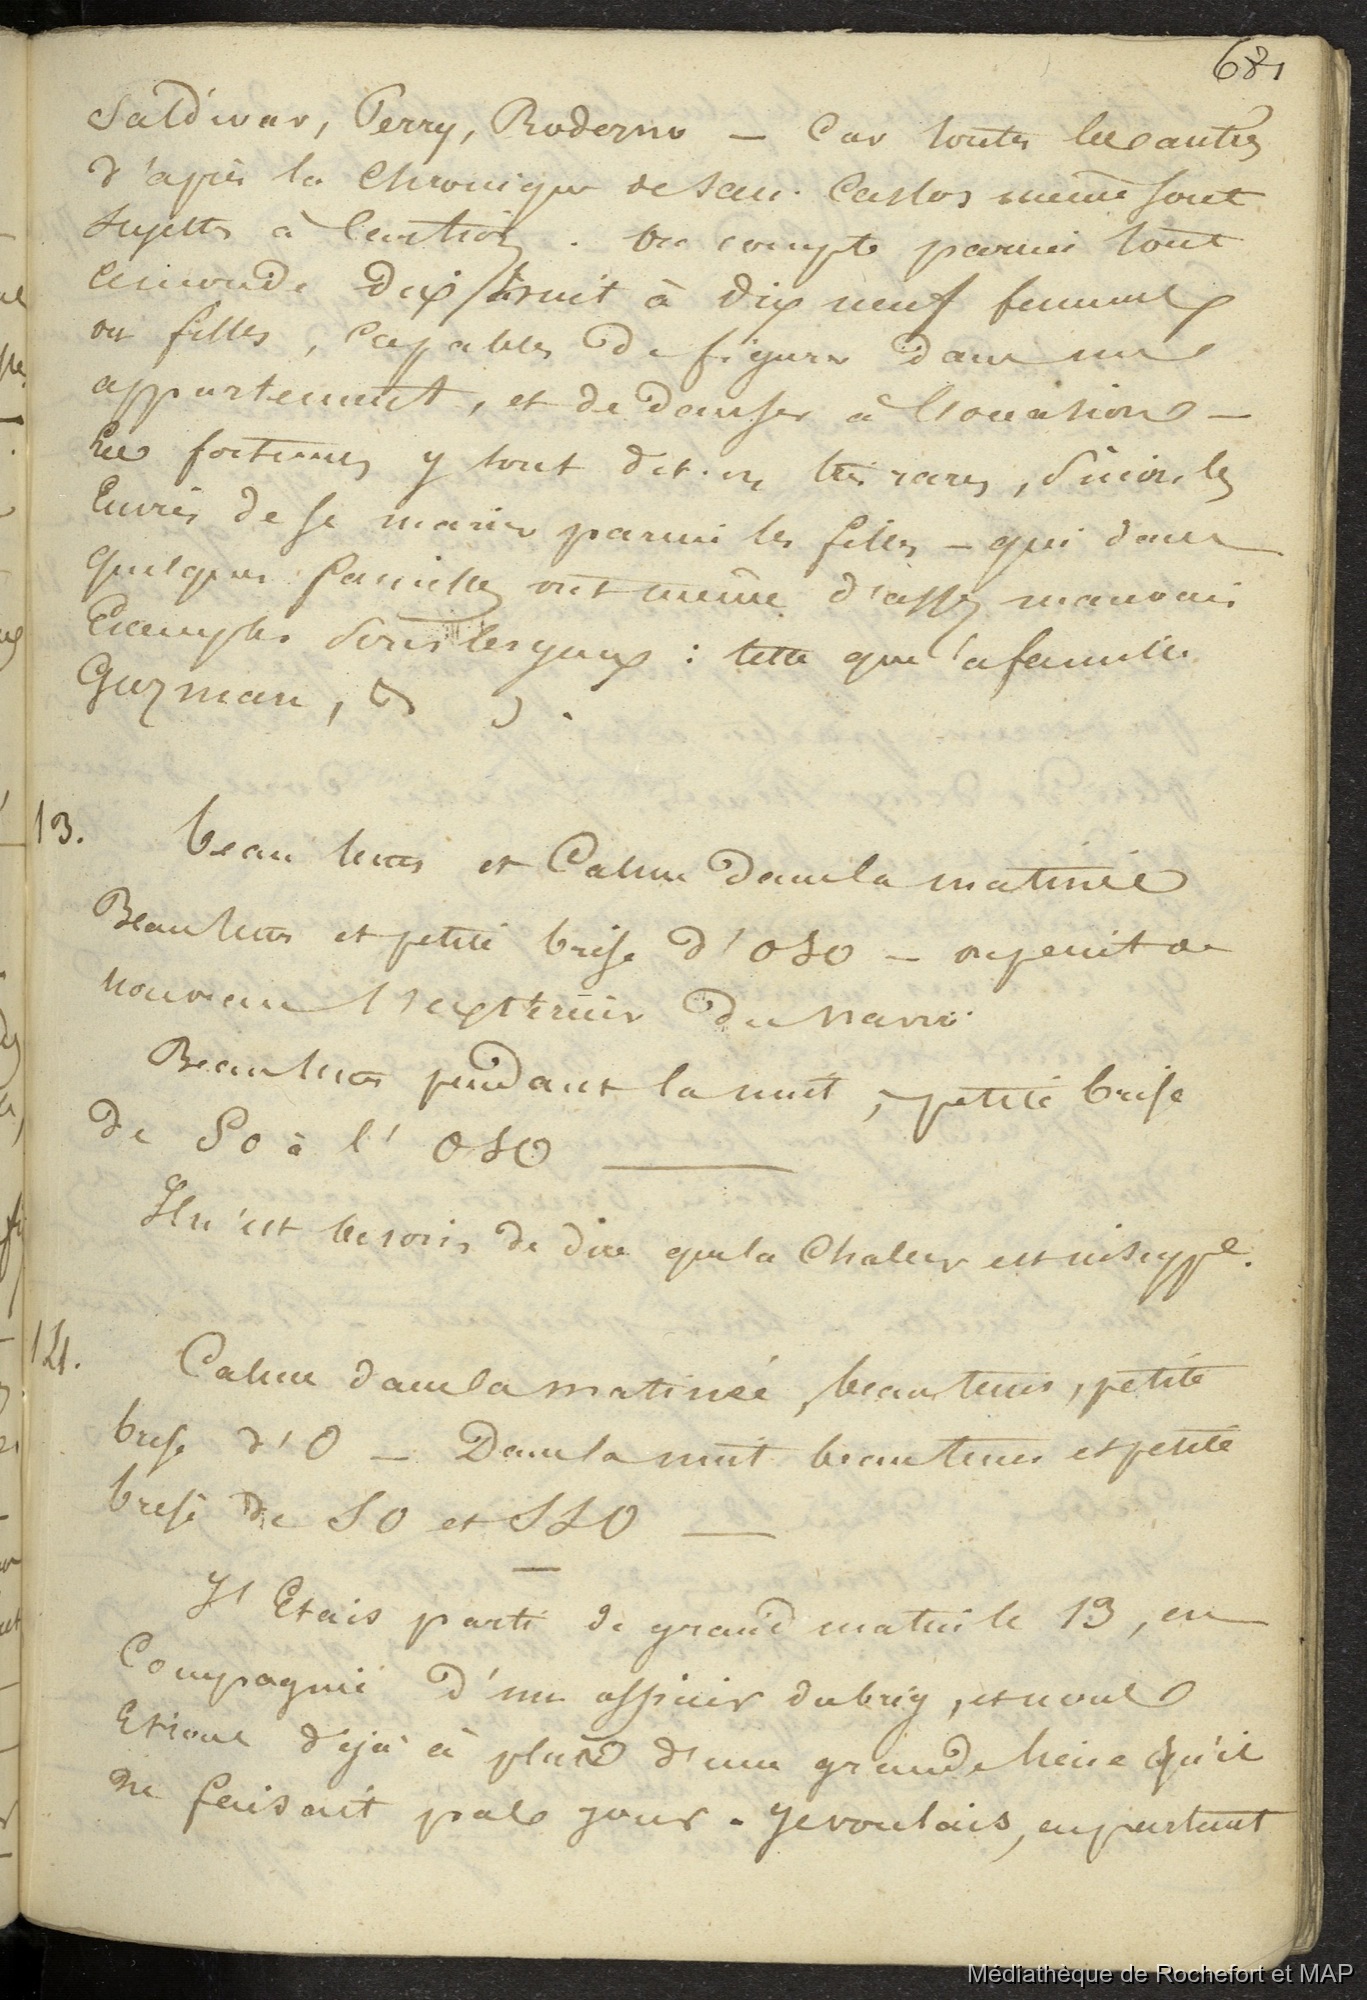 681
Saldivar, Perry, Roderno — Car toutes les autres
d'après la Chronique de San. Carlos même sont
sujettes à Caution. on compte parmi tout
ce monde dix huit à dix neuf femmes
ou filles, capables de figurer dans un
appartement, et de danser à l'occasion —
les fortunes y sont dit-on très rares, sinon les
Envies de se marier parmi les filles — qui dans
quelques familles ont même d'assez mauvais
Exemples sous les yeux : telle que la famille
Guzman, &
13. beau temps et Calme dans la matinée
Beau temps et petite brise d'OSO — on peint de
nouveau l'extérieur du navire.
Beau temps pendant la nuit, petite brise
de SO à l' OSO
Il n'est besoin de dire que la Chaleur est insupp.e
14. Calme dans la matinée, beau tems, petite
brise d'O — Dans la nuit beau tems et petite
brise de SO et SSO —
J'Etais parti de grand matin le 13, en
Compagnie d'un officier du brig, et nous
Etions déjà à plus d'une grande lieue qu'il
ne faisait pas jour. Je voulais, en partant
Médiathèque de Rochefort et MAP